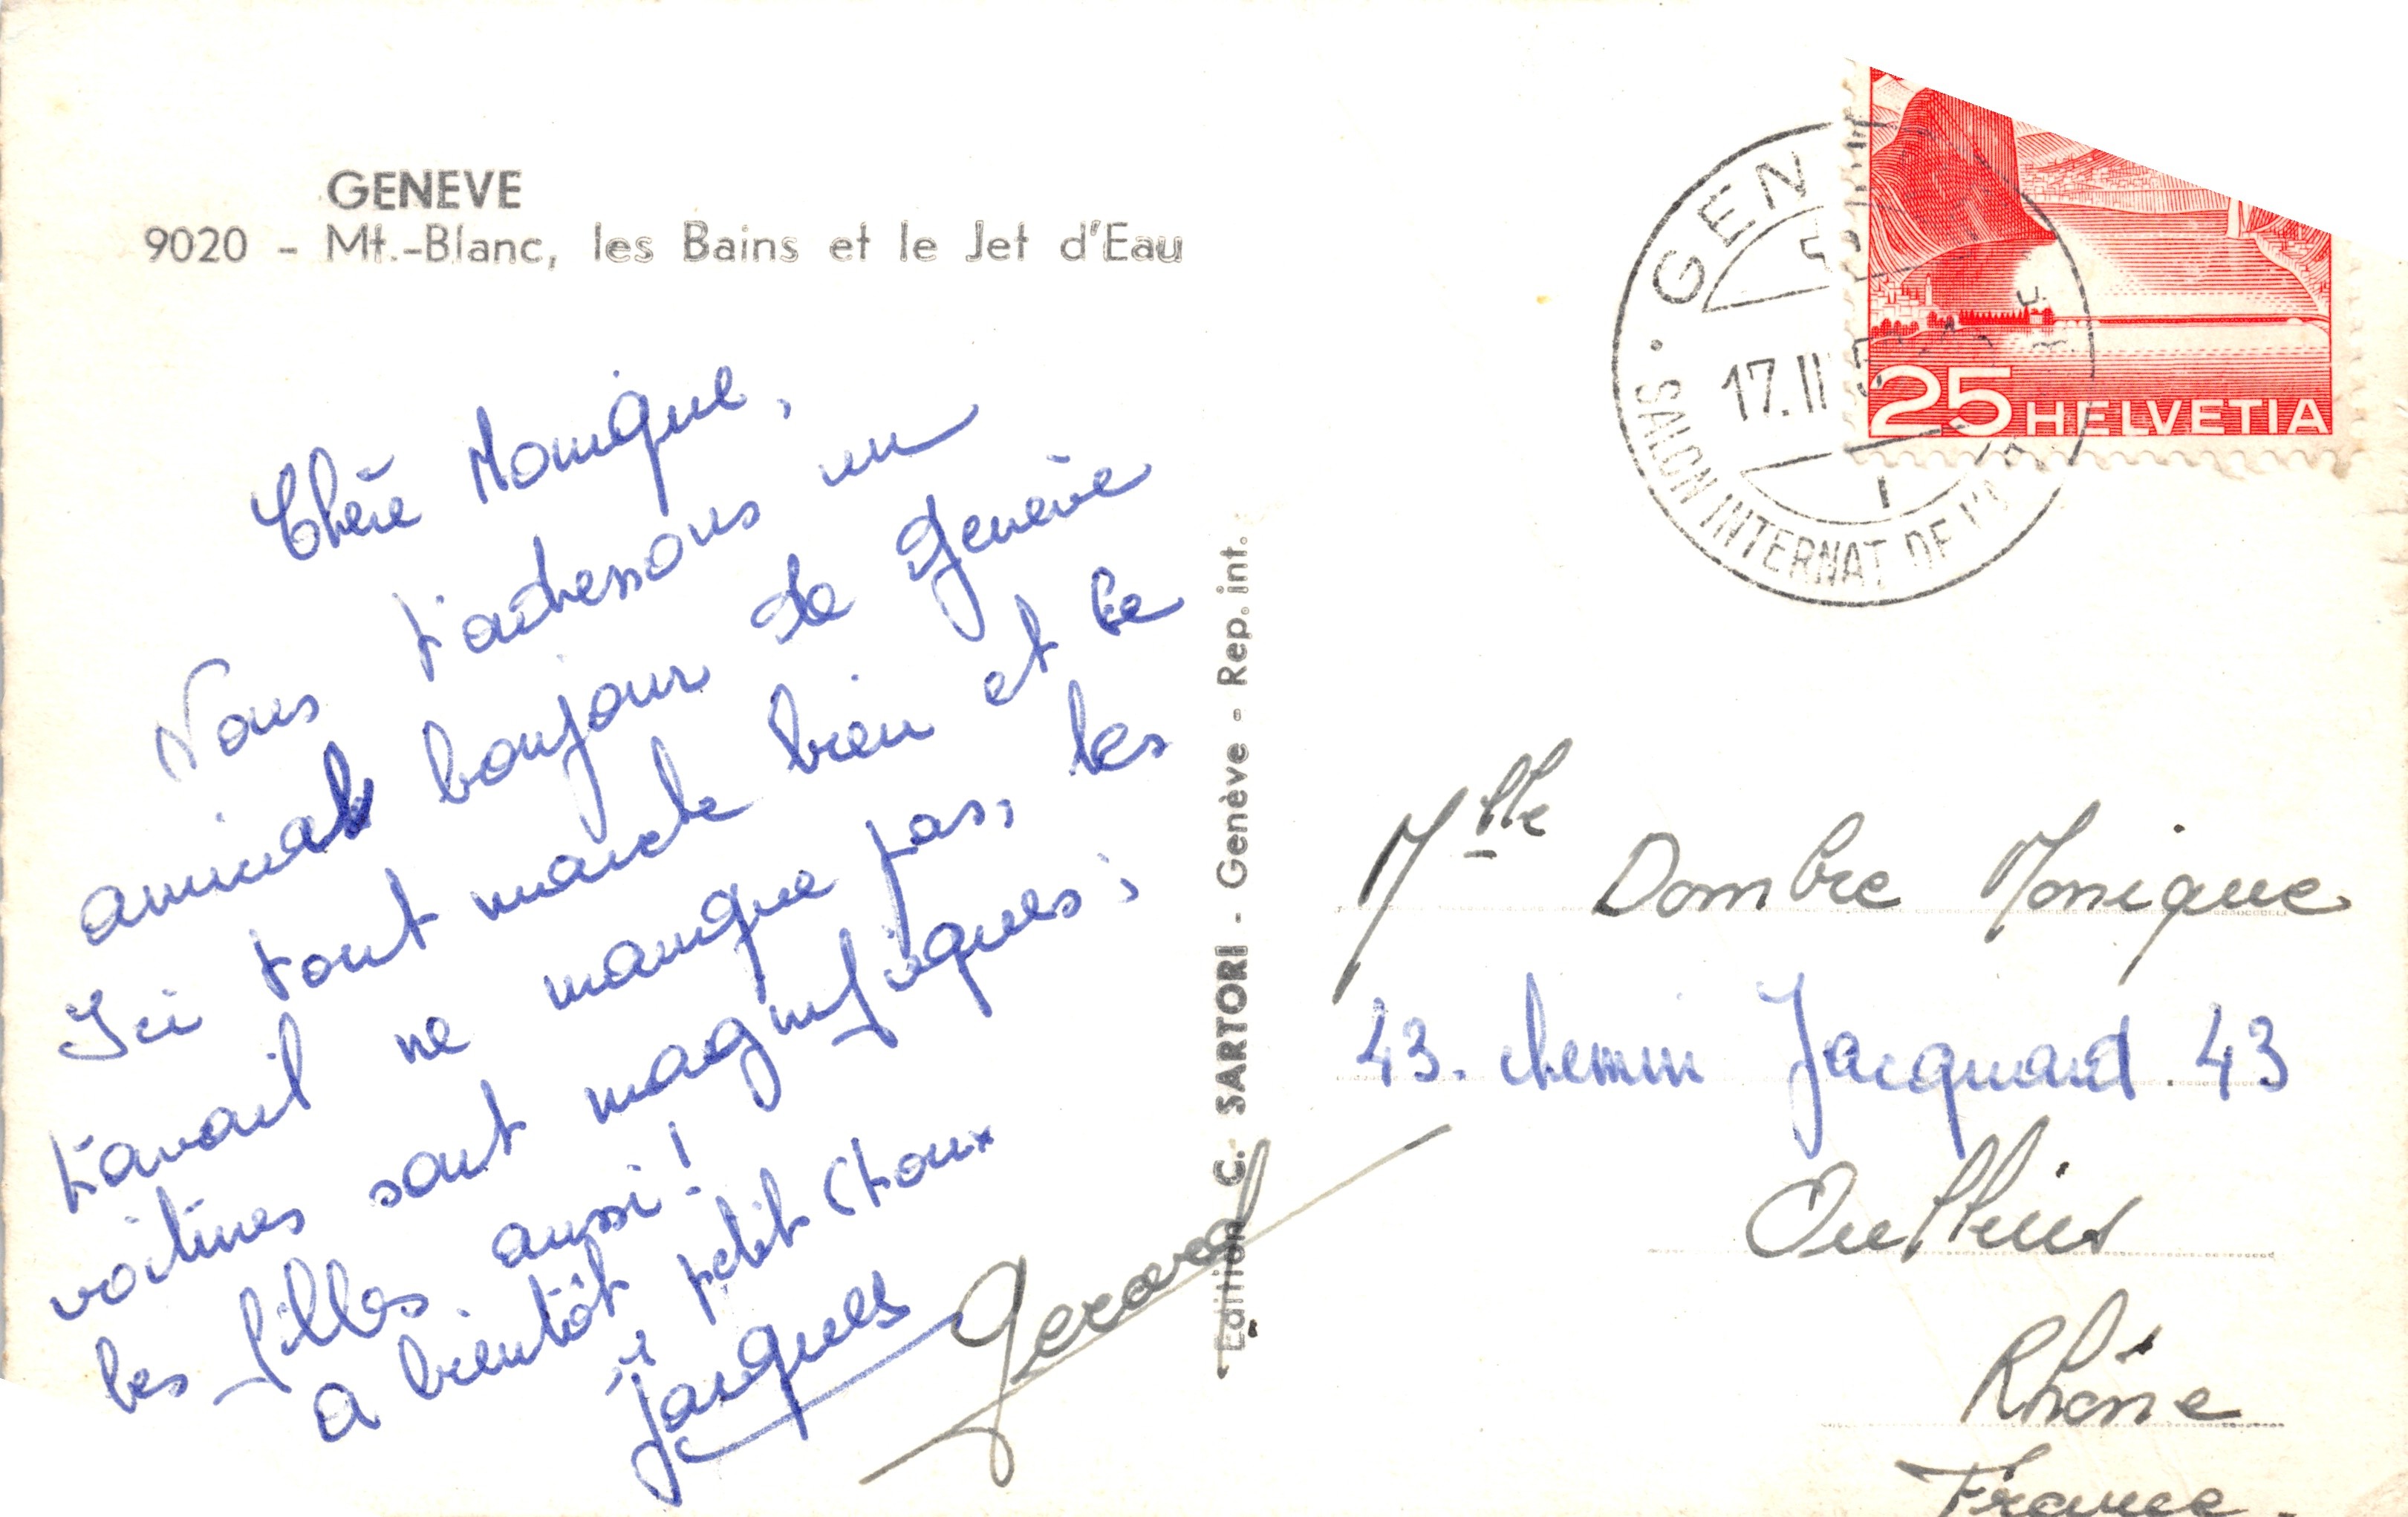 GENEVE
9020 - Mt.-Blanc, les Bains et le Jet d'Eau
Chère Monique,
Nous t'adressons un
amical bonjour de Genève
Ici tout marche bien et le
travail ne manque pas, les
voitures sont magnifiques;
les filles aussi!
a bientôt petit Choux
Jacques Gerard
Edition C. SARTORI - Genève - Rep. int.
GEN
17.II
1
SALON INTERNAT DE L'
25 HELVETIA
Mlle Dombre Monique
43. chemin Jacquard. 43
Oullins
Rhône
France.